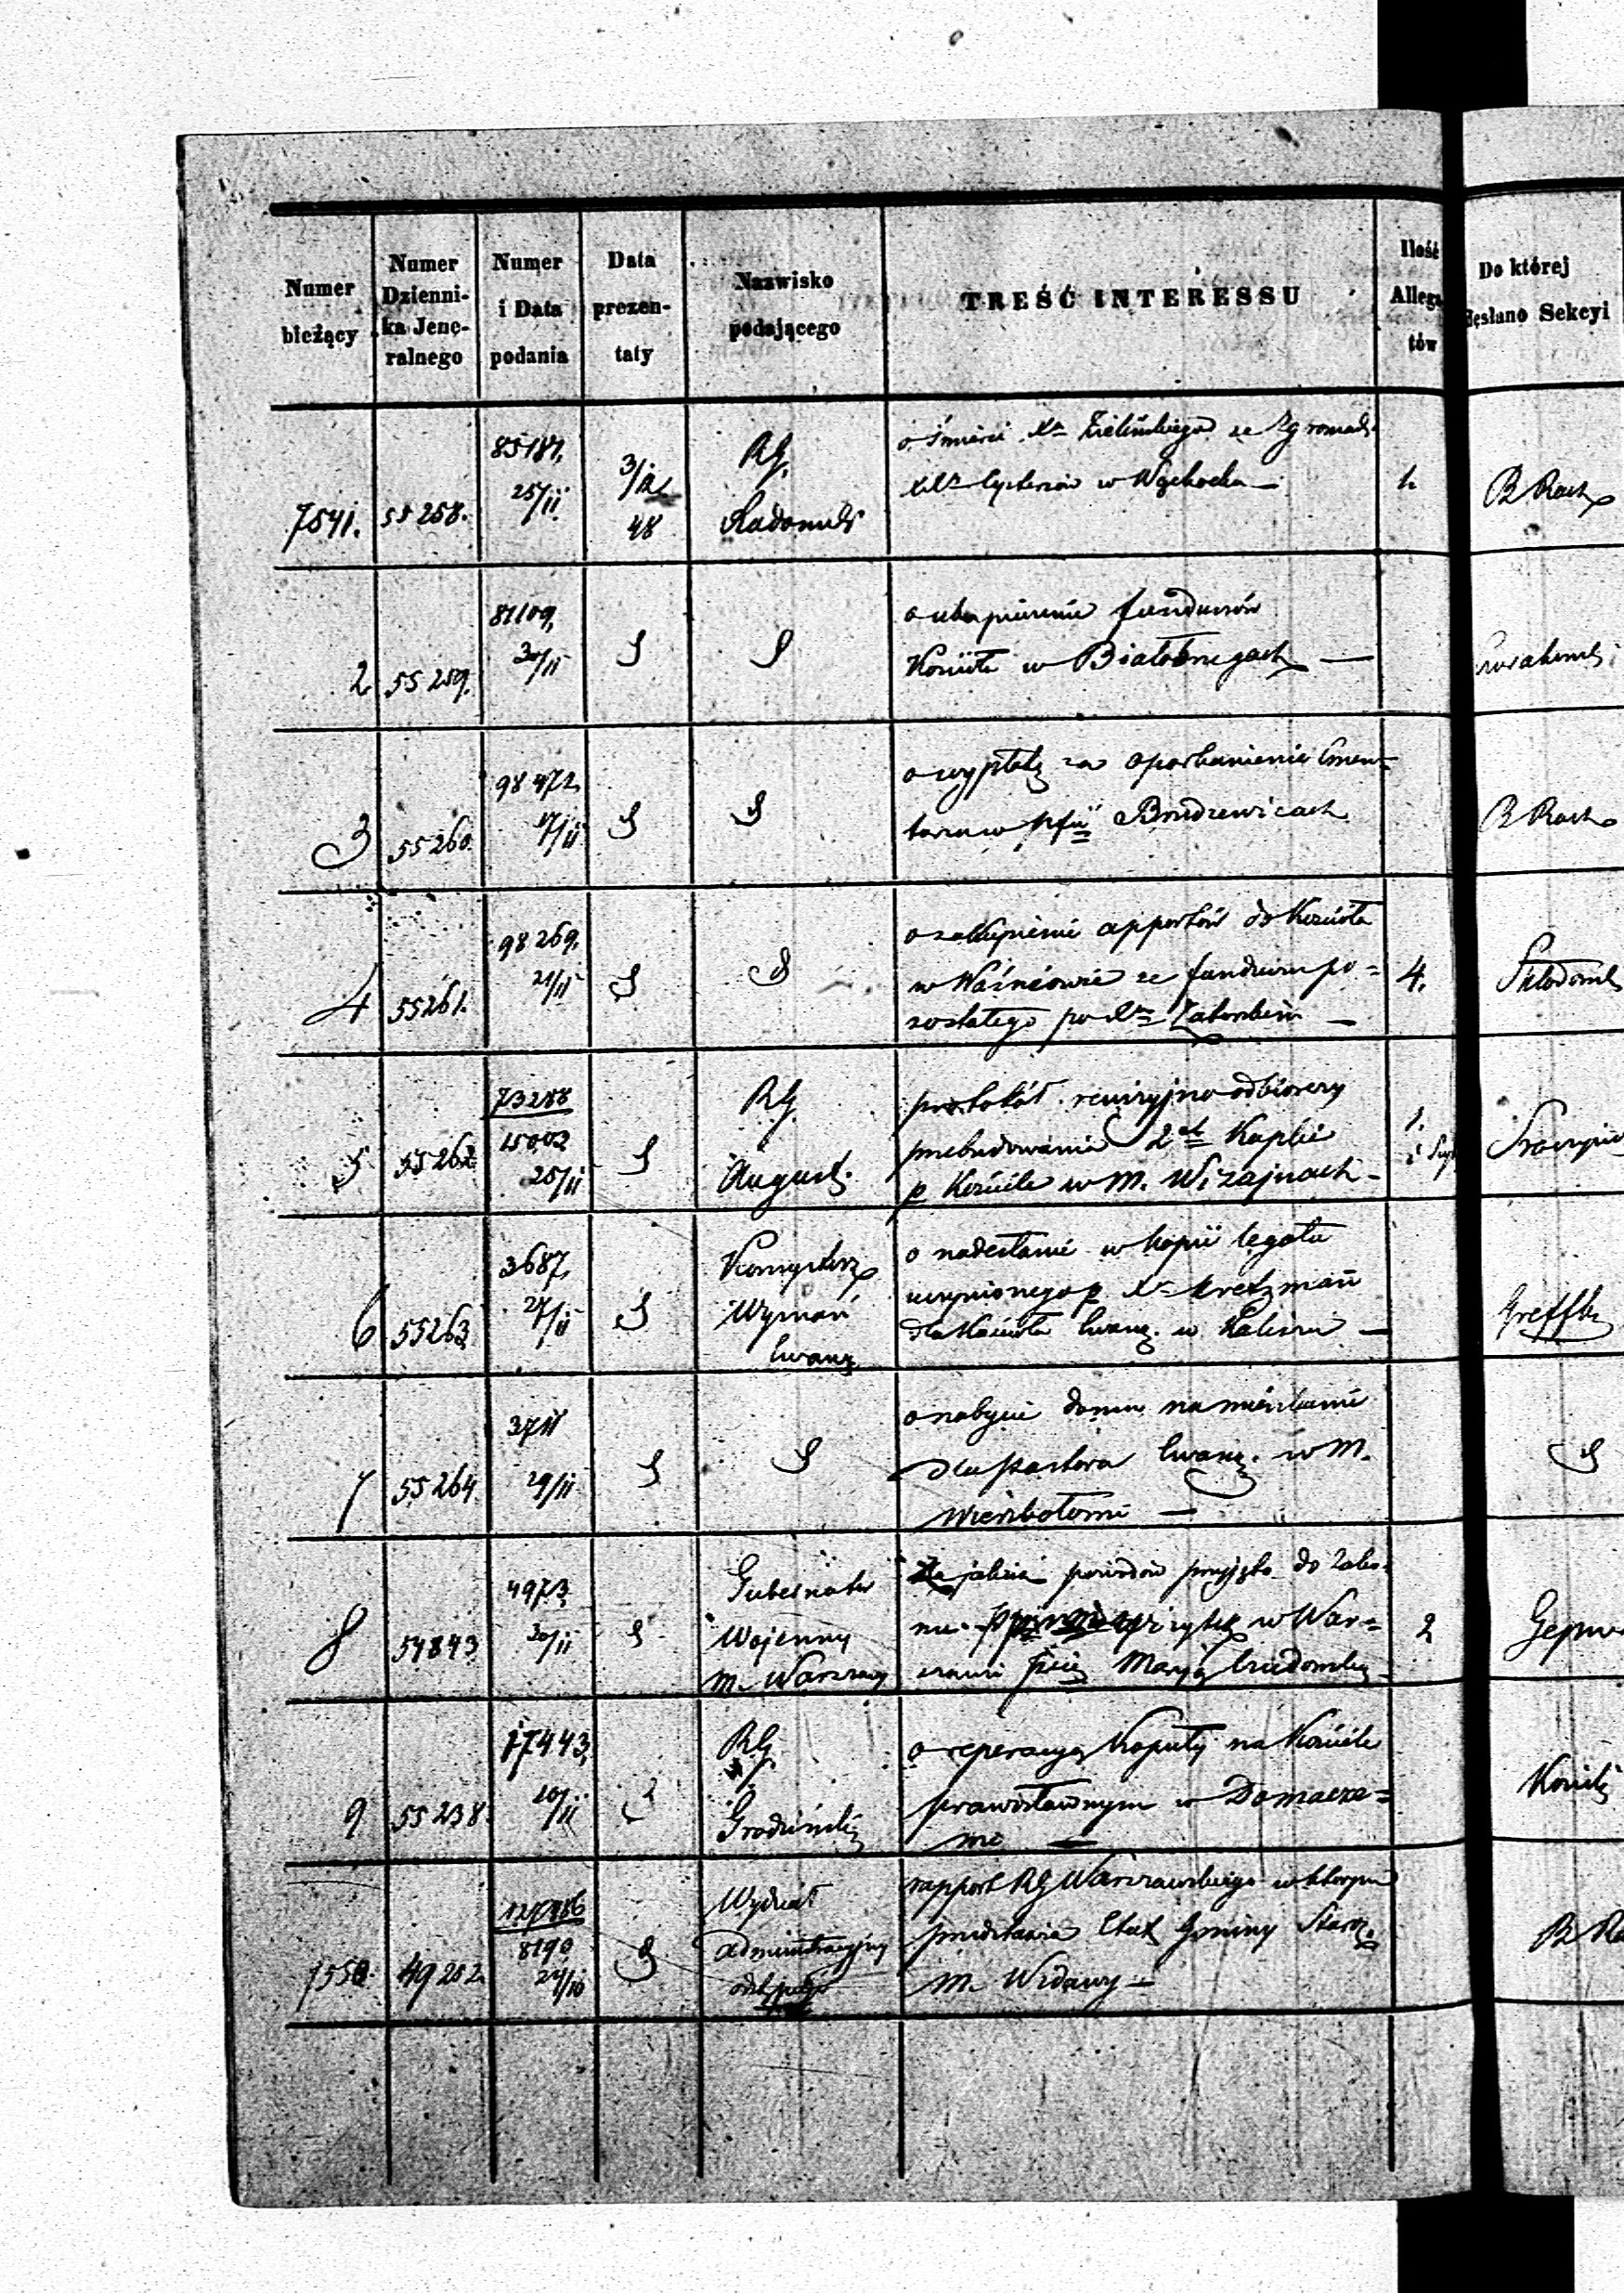 Numer bieżący
Numer Dziennika Jeneralnego
Numer i Data podania
Data prezentaty
Nazwisko podającego
TREŚĆ INTERESSU
Ilość Allegatów
Do której
Sekcyi
7541. 55258. 85187, 25/11 3/12 48 RG. Radomski
o śmierci Xa Zielińskiego ze Zgromadz.
XXw Cystersów w Wąchocku —
1. B Rach
2 55259. 81109, 30/11
o ubezpieczenie funduszów
Kościoła w Białobrzegach —
3 55260. 98472, 17/11
o wypłatę za oparkanienie Cmen=
tarza w pfii Brudzewicach
B Rach
4 55261. 98269, 21/11
o zakupienie apportów do Kościoła
w Waśniowie ze funduszu po=
zostałego po Xu —
4.
5 55262 73288 15002 25/11 RG. August.
protokół rewizyjno odbiorczy
przebudowania 2ch Kaplic
p Kościele w M. Wiżajnach —
1.
6 55263 3687, 27/11 Konsystorz Wyznań Ewang
o nadesłanie w kopii legatu
uczynionego p. Xa Kretzmań
dla Kościoła Ewang. w Kaliszu —
7 55264. 3711 29/11
o nabycie domu na mieszkanie
dla Pastora Ewang. w M.
Wierzbołowie —
8 54843 4973 30/11 Gubernator Wojenny m. Warszawy
jakich powodów przyjęto do Zako=
nu w War=
szawie Maryą
2
9 55238. 17443, 20/11 RG. Grodzieński
o reperacyą Kopuły na Kościele
prawosławnym w Domacze=
wie —
7550. 49252. 8190 Wydział Administracyjny
rapport RG Warszawskiego w którym
przedstawia Etat Gminy Staroz.
M. Widawy —